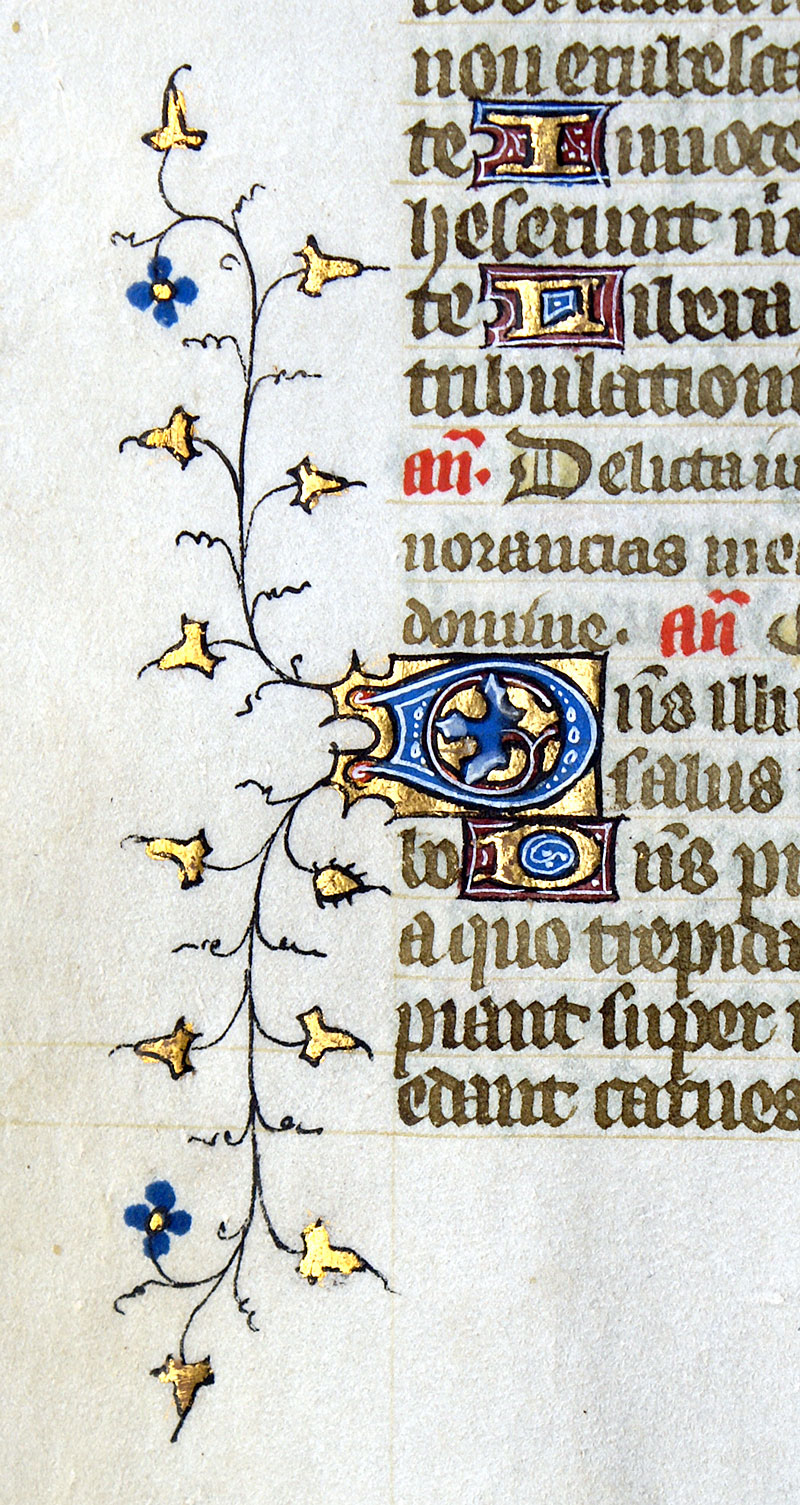 non erubesca
te Innoce
heserunt
te Libera
tribulationi
an̄. Delicta iu
norancias me
domine. an̄
Dn̄s illu
salus
bo Dn̄s pr
a quo trepida
piant super
edant carnes